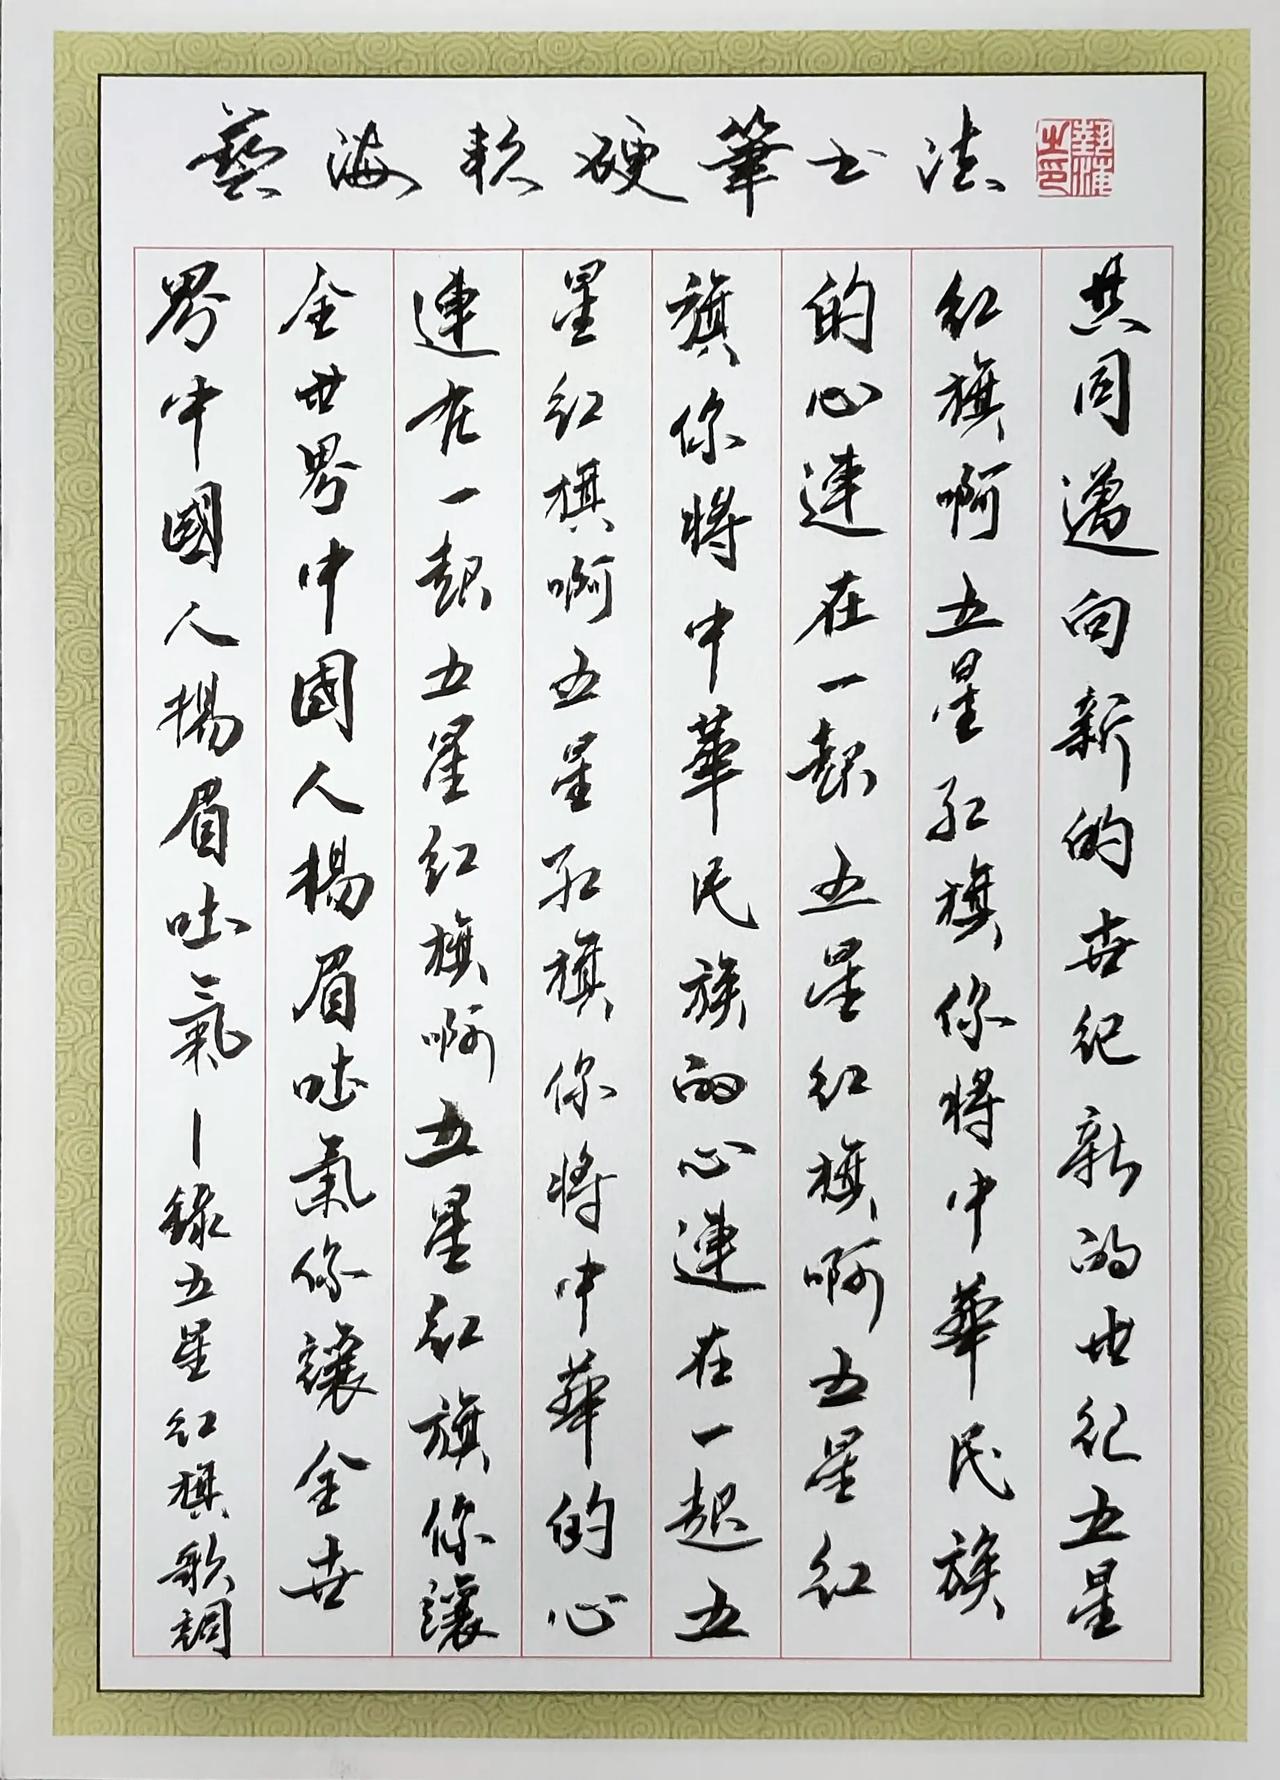 藝海軟硬筆书法
藝海之印
共同邁向新的世紀新的世纪五星
红旗啊五星红旗你将中華民族
的心連在一起五星红旗啊五星红
旗你将中華民族的心連在一起五
星红旗啊五星红旗你将中華的心
連在一起五星红旗啊五星红旗你讓
全世界中國人楊眉吐氣你讓全世
界中國人楊眉吐氣—錄五星红旗歌詞